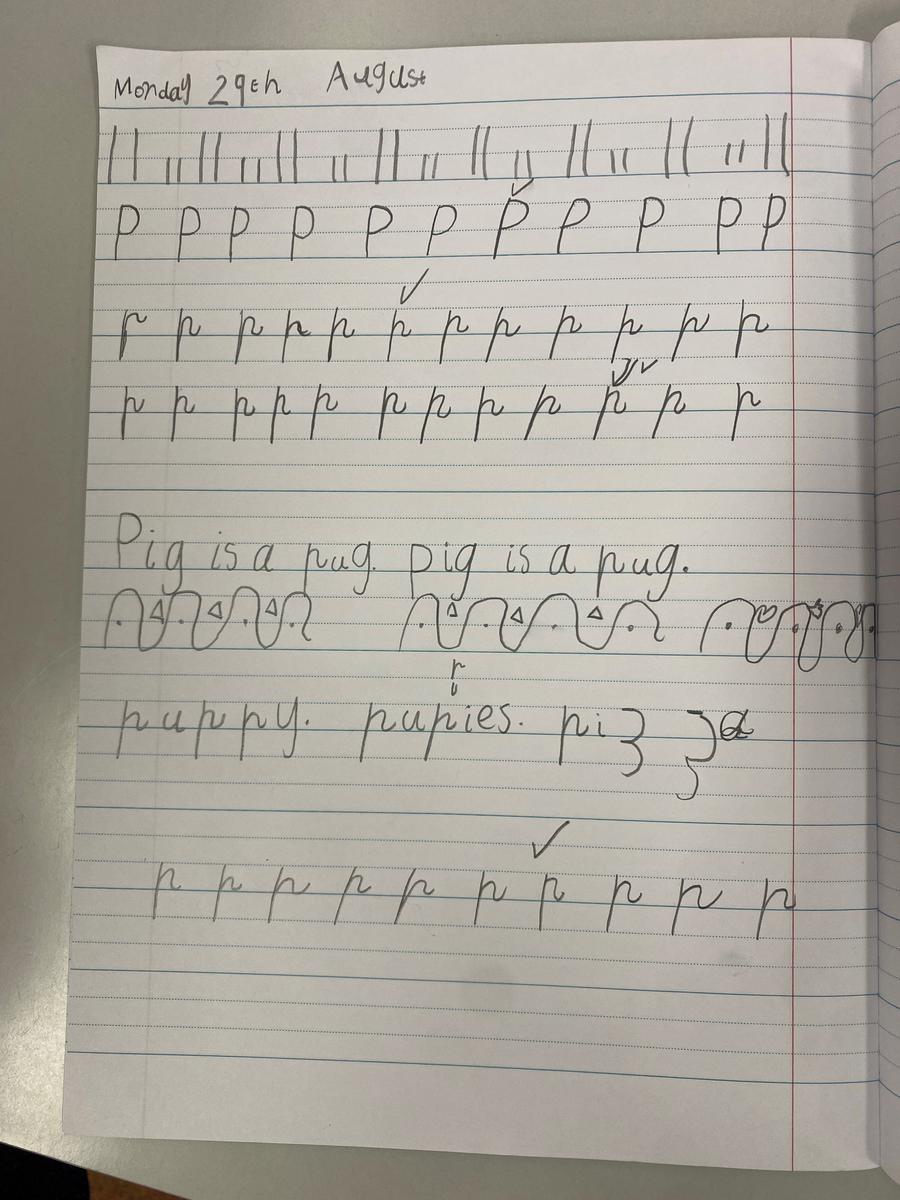 Monday 29th August
P P P P P P P P P P P
r p p p p p p p p p p p
p p p p p p p p p p p p
Pig is a pug. pig is a pug.
puppy. pupies. pi
p p p p p p p p p p